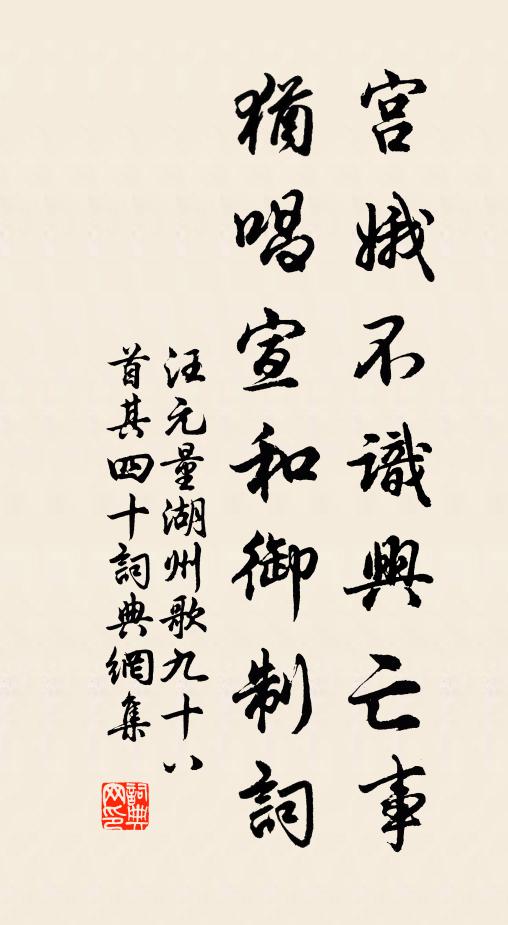 宮娥不識興亡事
猶唱宣和御制詞
汪元量湖州歌九十八
首其四十詞典網集
詞典网印